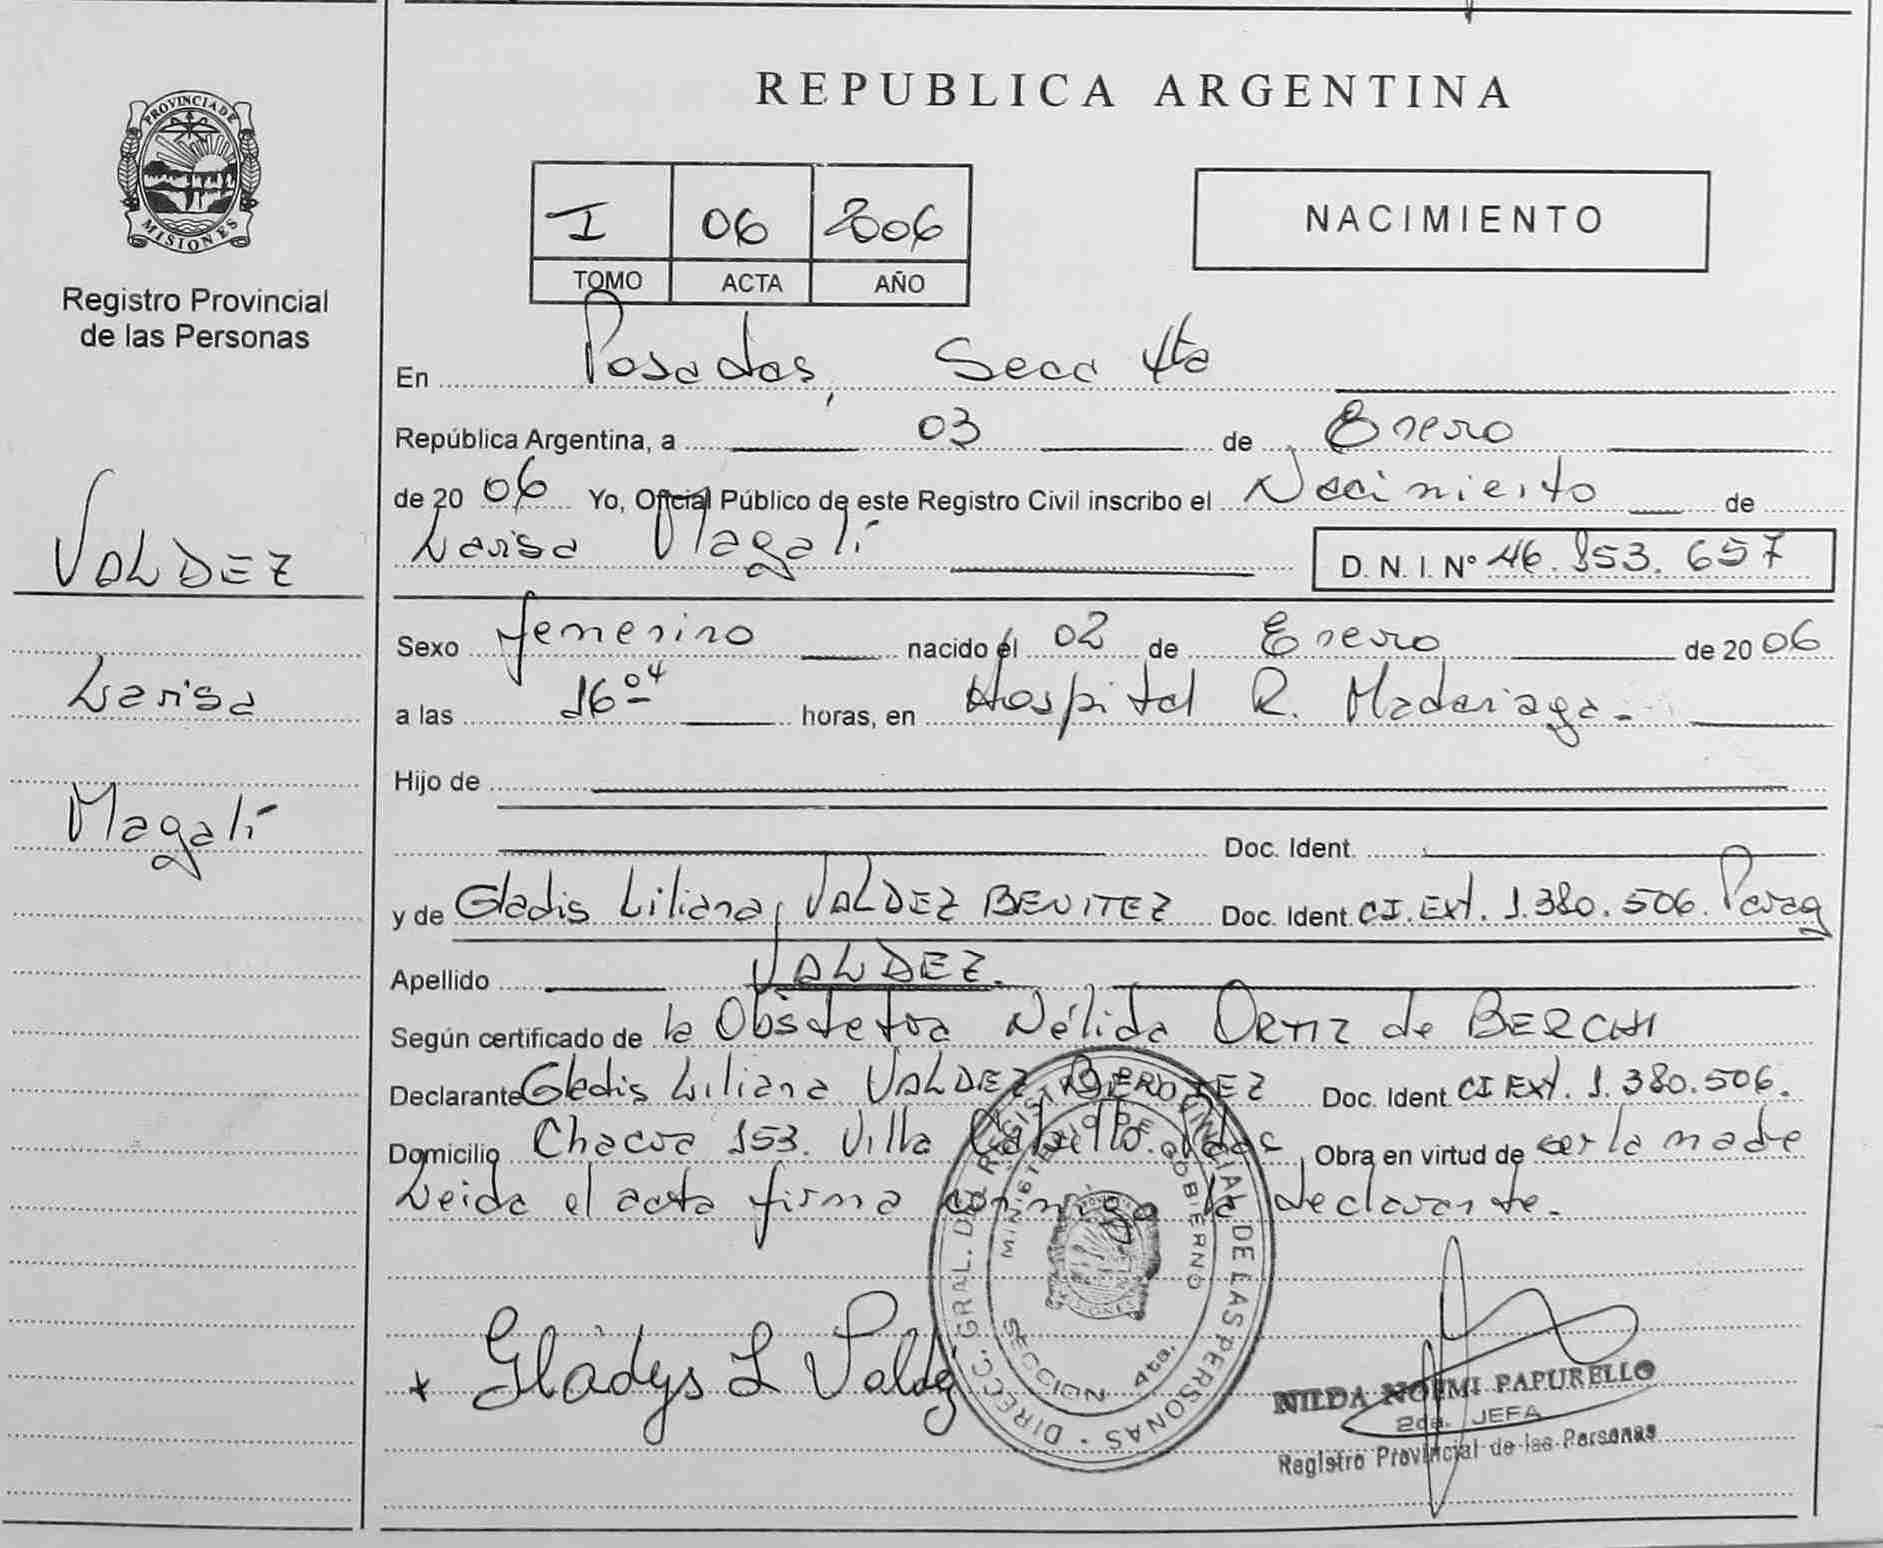 REPUBLICA ARGENTINA
PROVINCIA DE
MISIONES
Registro Provincial
de las Personas
I 06 2006
TOMO ACTA AÑO
NACIMIENTO
En Posadas, Secc 4ta
República Argentina, a 03 de Enero
de 20 06 Yo, Oficial Público de este Registro Civil inscribo el Nacimiento de
Larisa Magalí D. N. I. Nº 46.153.657
VALDEZ
Larisa
Magalí
Sexo femenino nacido el 02 de Enero de 20 06
a las 16 04 horas, en Hospital R. Madariaga.
Hijo de
Doc. Ident.
y de Gladis Liliana, VALDEZ BENITEZ Doc. Ident. CI. Ext. 1.380.506. Parag
Apellido VALDEZ.
Según certificado de la Obstetra Nélida ORTIZ de BERCHI
Declarante Gladis Liliana VALDEZ BENITEZ Doc. Ident. CI Ext. 1.380.506.
Domicilio Chacra 153. Villa Cabello. Pdas Obra en virtud de ser la madre
Leida el acta firma conmigo la declarante.
DIRECC. GRAL. DEL REGISTRO PROVINCIAL DE LAS PERSONAS
MINISTERIO DE GOBIERNO
SECCION 4ta.
x Gladys L Valdez
NILDA NOEMI PAPURELLO
2da. JEFA
Registro Provincial de las Personas